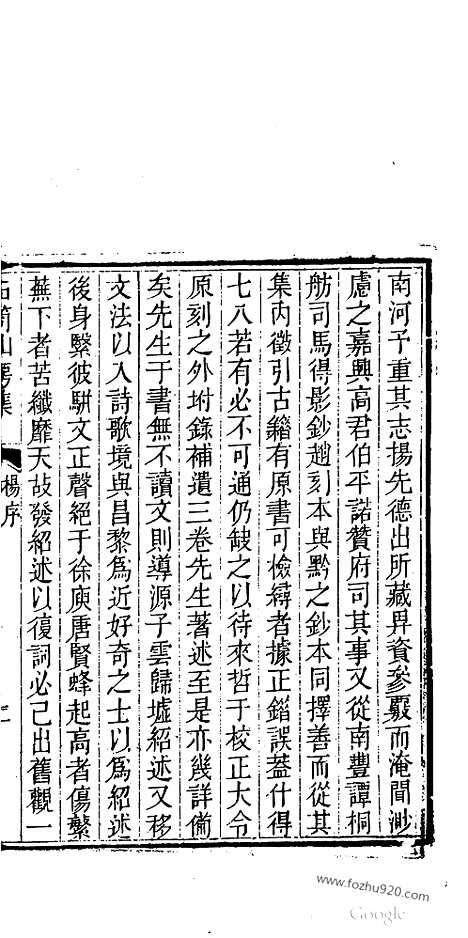 南河予重其志揚先德出所藏畀資參覈而淹閒渺
慮之嘉興高君伯平諾贊府司其事又從南豐譚桐
舫司馬得影鈔趙刻本與黔之鈔本同擇善而從其
集內徵引古籍有原書可檢尋者據正錯誤葢什得
七八若有必不可通仍缺之以待來哲于校正大令
原刻之外坿錄補遺三卷先生著述至是亦幾詳備
矣先生于書無不讀文則導源子雲歸墟紹述又移
文法以入詩歌境與昌黎爲近好奇之士以爲紹述
後身繄彼駢文正聲絕于徐庾唐賢蜂起高者傷繫
蕪下者苦纖靡天故發紹述以復詞必己出舊觀一
石笥山房集
楊序
二
www.fozhu920.com
Google